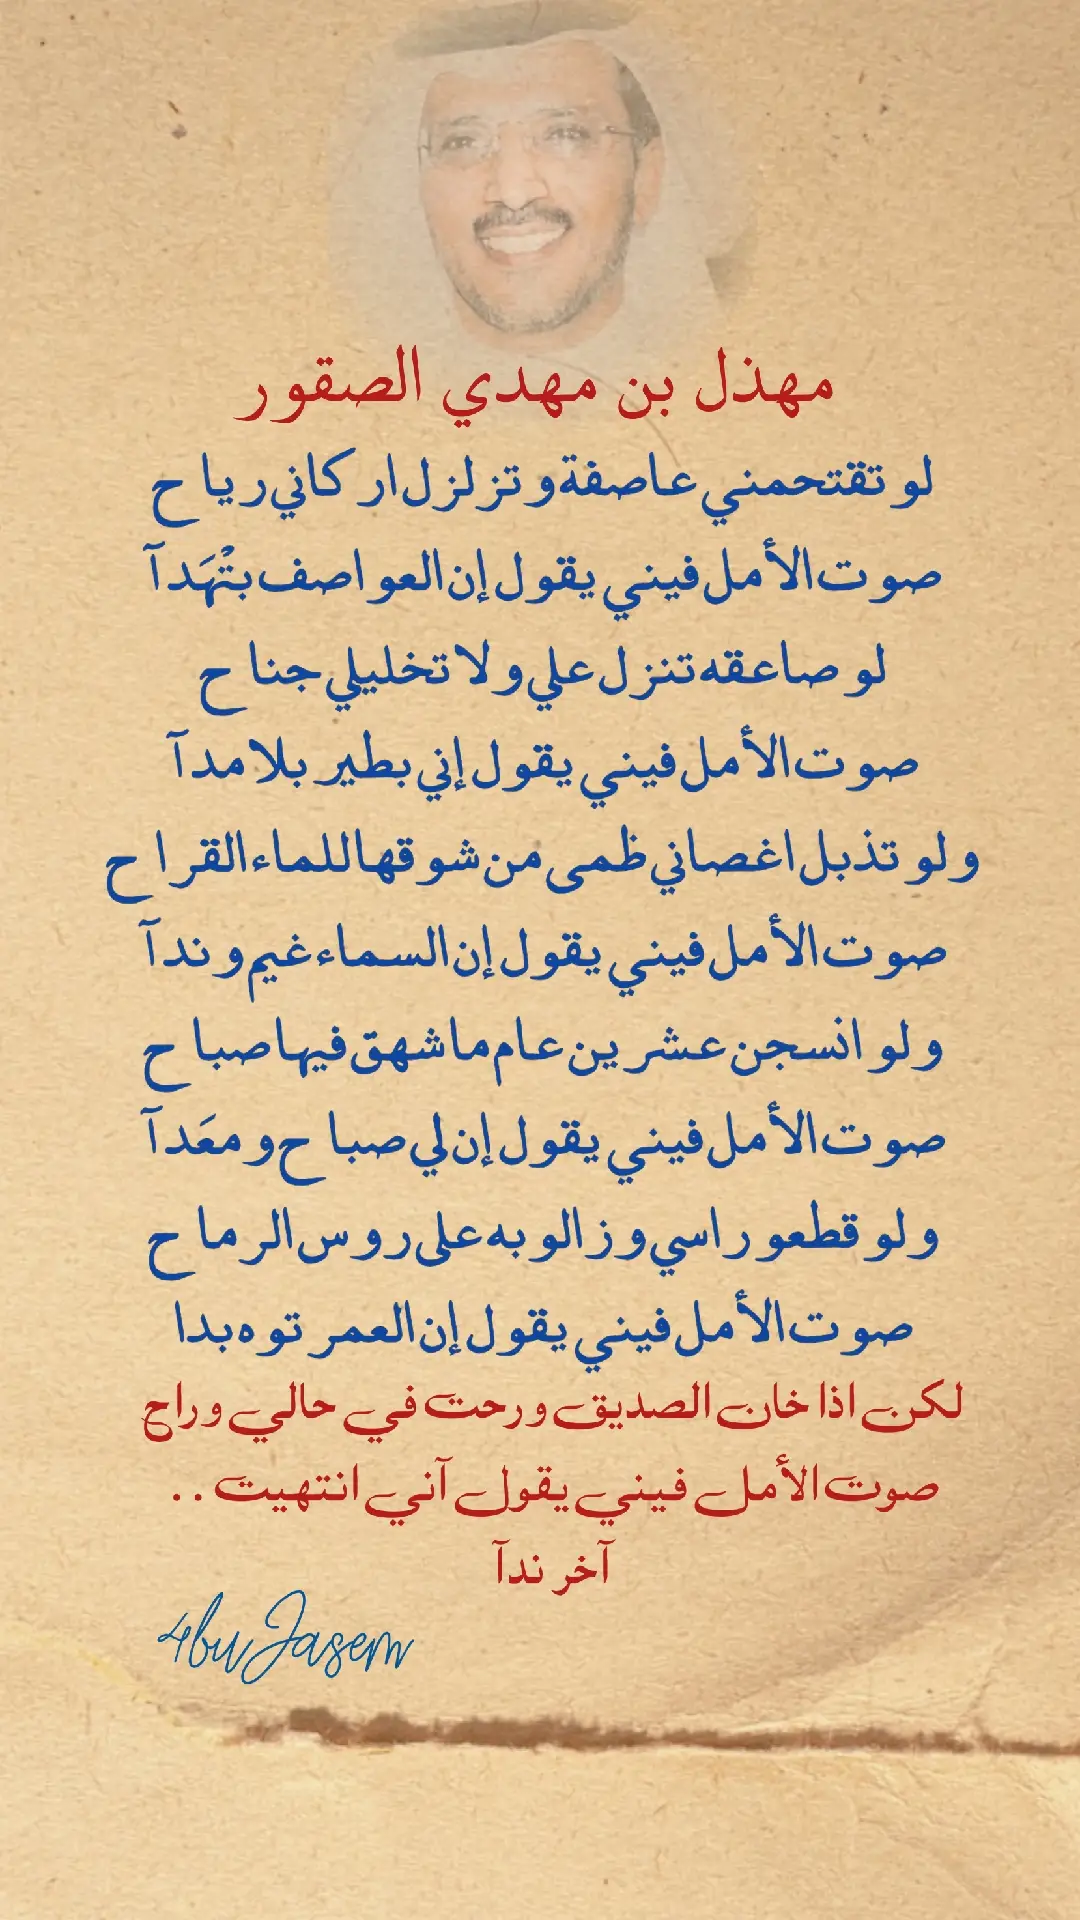 مهذل بن مهدي الصقور
لو تقتحمني عاصفة و تزلزل اركاني رياح
صوت الأمل فيني يقول إن العواصف بتْهَدآ
لو صاعقه تنزل علي ولا تخليلي جناح
صوت الأمل فيني يقول إني بطير بلا مدآ
ولو تذبل اغصاني ظمى من شوقها للماء القراح
صوت الأمل فيني يقول إن السماء غيم وندآ
ولو انسجن عشرين عام ما شهق فيها صباح
صوت الأمل فيني يقول إن لي صباح و معَدآ
ولو قطعو راسي وزالو به على روس الرماح
صوت الأمل فيني يقول إن العمر توه بدا
لكن اذا خان الصديق ورحت في حالي وراح
صوت الأمل فيني يقول آني انتهيت ..
آخر ندآ
4bu Jasem